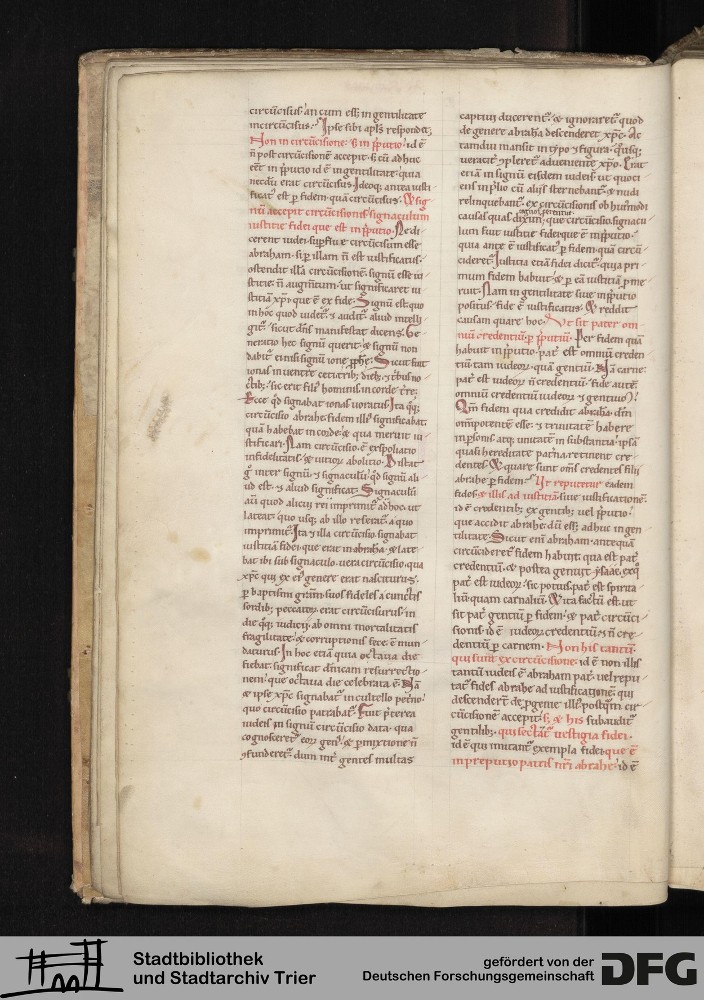 circūcisus' an cum esset in gentilitate
incircūcisus. Ipse sibi apls respondet,
Non in circūcisione s; in p̄putio. id ē
n̄ post circūcisionē accepit. s; cū adhuc
eēt in p̄putio id ē in gentilitate. quia
necdū erat circūcisus. Ideoq; antea iusti
ficat' est p̱ fidem quā circūcisus. & sig
nū accepit circūcisionis signaculum
iustitie fidei que est in p̄putio. Ne di
cerent iudei sup̱fluū circūcisum esse
abraham. si p̱ illam n̄ est iustificatus.
ostendit illā circūcisionē. signū esse iu
stitie. n̄ augm̄tum. ut significaret iu
stitiā xp̄i que ē ex fide. Signū est quo
in hoc quod uidet' & audit' aliud intelli
git'. sicut dn̄s manifestat dicens. Ge
neratio hec signū querit. & signū non
dabit' ei nisi signū ione pphe. Sicut fuit
ionas in uentre ceti trib; dieb; & trib; no
ctib;. sic erit fili' hominis in corde t̄re.
Ecce qd signabat ionas uoratus. Ita q;q;
circūcisio abrahe fidem illi' significabat.
quā habebat in corde. & qua meruit iu
stificari. Nam circūcisio ē exspoliatio
infidelitatis. & uitiorum abolitio. Distat
g inter signū & signaculū. qd signū ali
ud est. & aliud significat. Signaculū
aū quod alicui rei imprimit' adhoc. ut
lateat. quo usq; ab illo reseret' a quo
imprimit'. Ita & illa circūcisio signabat
iustitiā fidei. que erat in abraha. & late
bat ibi sub signaculo. uera circūcisio. qua
xp̄c qui ex ei' genere erat nasciturus.
p̱ baptismi grām. suos fideles a cunctis
sordib; peccatorum erat circūcisurus. in
die qq; iudicii. ab omni mortalitatis
fragilitate. & corruptionis fece. ē mun
daturus. In hoc etiā quia octaua die
fiebat. significat dn̄icam resurrectio
nem. que octaua die celebrata ē. Nā
& ipse xp̄c signabat' in cultello petrino
quo circūcisio patrabat'. Fuit p̱terea
iudeis in signū circūcisio data. qua
cognosceret' eorum gen'. & p̱mixtione n̄
cfunderet'. dum int' gentes multas
captiui ducerent'. & ignoraret' quod
de genere abrahā descenderet xp̄c. Ac
tamdiu mansit in typo & figura. qusq;
ueritat' cpleret' adueniente xp̄o. Erat
etiā in signū eisdem iudeis. ut quoti
ens in p̄lio cū aliis sternebant'. & nudi
relinquebant'. ex circūcisionis ob hui'modi
causas quas dixim'. que circūcisio. signacu
lum fuit iustitie fidei que ē in p̄putio.
quia ante ē iustificat' p̱ fidem. quā circū
cideret'. Iustitia etiā fidei dicit'. quia pri
mum fidem habuit. & p̱ eā iustitiā p̱me
ruit. Nam in gentilitate siue in p̄putio
positus. fide ē iustificatus. & reddit
causam quare hoc. Vt sit pater om
niū credentiū p̱ p̄putiū. Per fidem quā
habuit in p̄putio. pat' est omniū creden
tiū tam iudeorum. quā gentiū. Nā carne
pat' est iudeorum n̄ credentiū. fide autē
omniū credentiū iudeorum & gentium.
Qm̄ fidem qua credidit abraha dm̄
om̄ipotentē esse. & trinitatē habere
in p̱sonis. atq; unitatē in substantia. ipsā
quasi hereditate pat'na retinent cre
dentes. & quare sunt om̄s credentes filii
abrahe p̱ fidem. Ut reputetur eadem
fides. & illis ad iustitiā. siue iustificationē.
id ē credentib; ex gentib; uel p̄putio.
que accidit abrahe. dū esset adhuc in gen
tilitate. Sicut enī abraham. antequā
circūcideret' fidem habuit. qua est pat'
credentiū. & postea genuit ysaac. ex quo
pat' est iudeorum. sic potius. pat' est spirita
liū. quam carnaliū. & ita factū est. ut
sit pat' gentiū p̱ fidem. & pat' circūci
sionis. id ē iudeorum credentiū. & n̄ cre
dentiū p̱ carnem. Non his tantū
qui sunt ex circūcisione. id ē non illis
tantū iudeis ē abraham pat'. uel repu
tat' fides abrahe ad iustificationē. qui
descendert' de p̱genie illi'. postqm̄ cir
cūcisionē accepit. s; & his subaudit'
gentilib;. qui sectant' uestigia fidei.
id ē qui imitant' exempla fidei. que ē
in preputio patris nr̄i abrahe. id ē
Stadtbibliothek
und Stadtarchiv Trier
gefördert von der
Deutschen Forschungsgemeinschaft
DFG